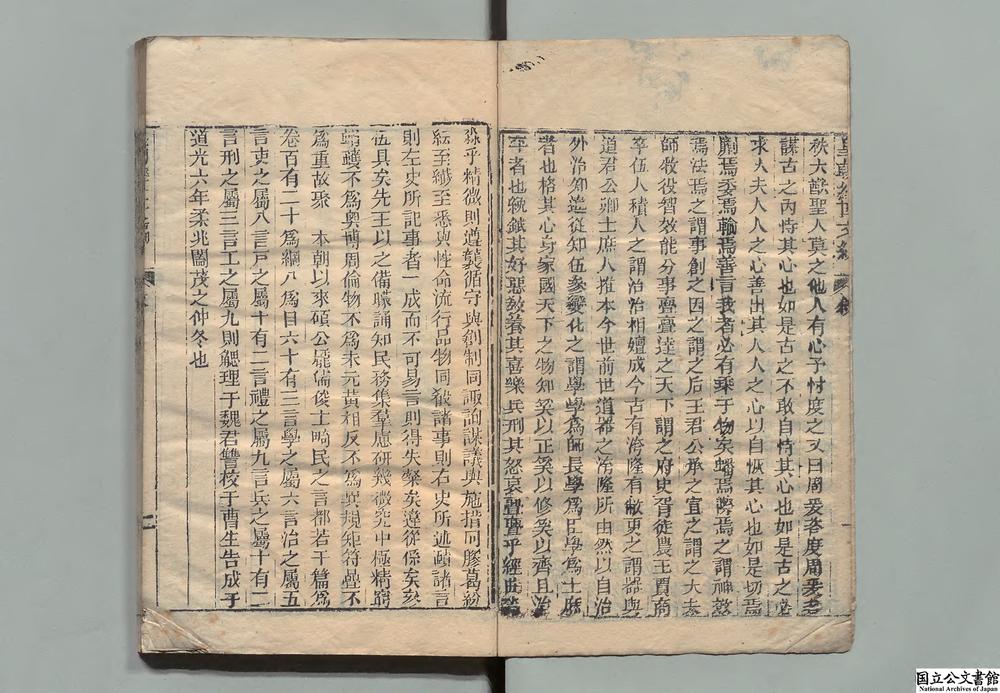 皇朝經世文編 敘
秩大猷聖人莫之他人有心予忖度之又曰周爰咨度周爰咨
謀古之丙恃其心也如是古之不敢自恃其心也如是古之善
求人夫人人之心善出其人人之心以自恢其心也如是切焉
劘焉委焉輸焉善言我者必有乘于物矣蟠焉際焉之謂神效
焉法焉之謂事創之因之謂之后王君公承之宜之謂之大夫
師牧役智效能分事亹亹達之天下謂之府史胥徒農工賈商
卒伍人積人之謂治治相嬗成今古有洿隆有敝更之謂器與
道君公卿士庶人推本今世前世道器之洿隆所由然以自治
外治知違從知伍參變化之謂學學爲師長學爲臣學爲士庶
者也格其心身家國天下之物知奚以正奚以修奚以齊且治
平者也其好惡敎養其喜樂兵刑其怒哀亹亹乎經曲
淼乎精微則遵襲循守與創制同諏詢謀議與施措同膠葛紛
紜至纖至悉與性命流行品物同載諸事則右史所述賾諸言
則左史所記事者一成而不可易言則得失粲矣違從係矣參
伍具矣先王以之備矇誦知民務集羣慮硏幾微究中極精窮
蝡蠖不爲奧博周倫物不爲末元黃相反不爲異規矩符疊不
爲重故聚　本朝以來碩公龐儒俊士畸民之言都若干篇爲
卷百有二十爲綱八爲目六十有三言學之屬六言治之屬五
言吏之屬八言戶之屬十有二言禮之屬九言兵之屬十有二
言刑之屬三言工之屬九則鰓理于魏君讐校于曹生告成于
道光六年柔兆閹茂之仲冬也
国立公文書館
National Archives of Japan